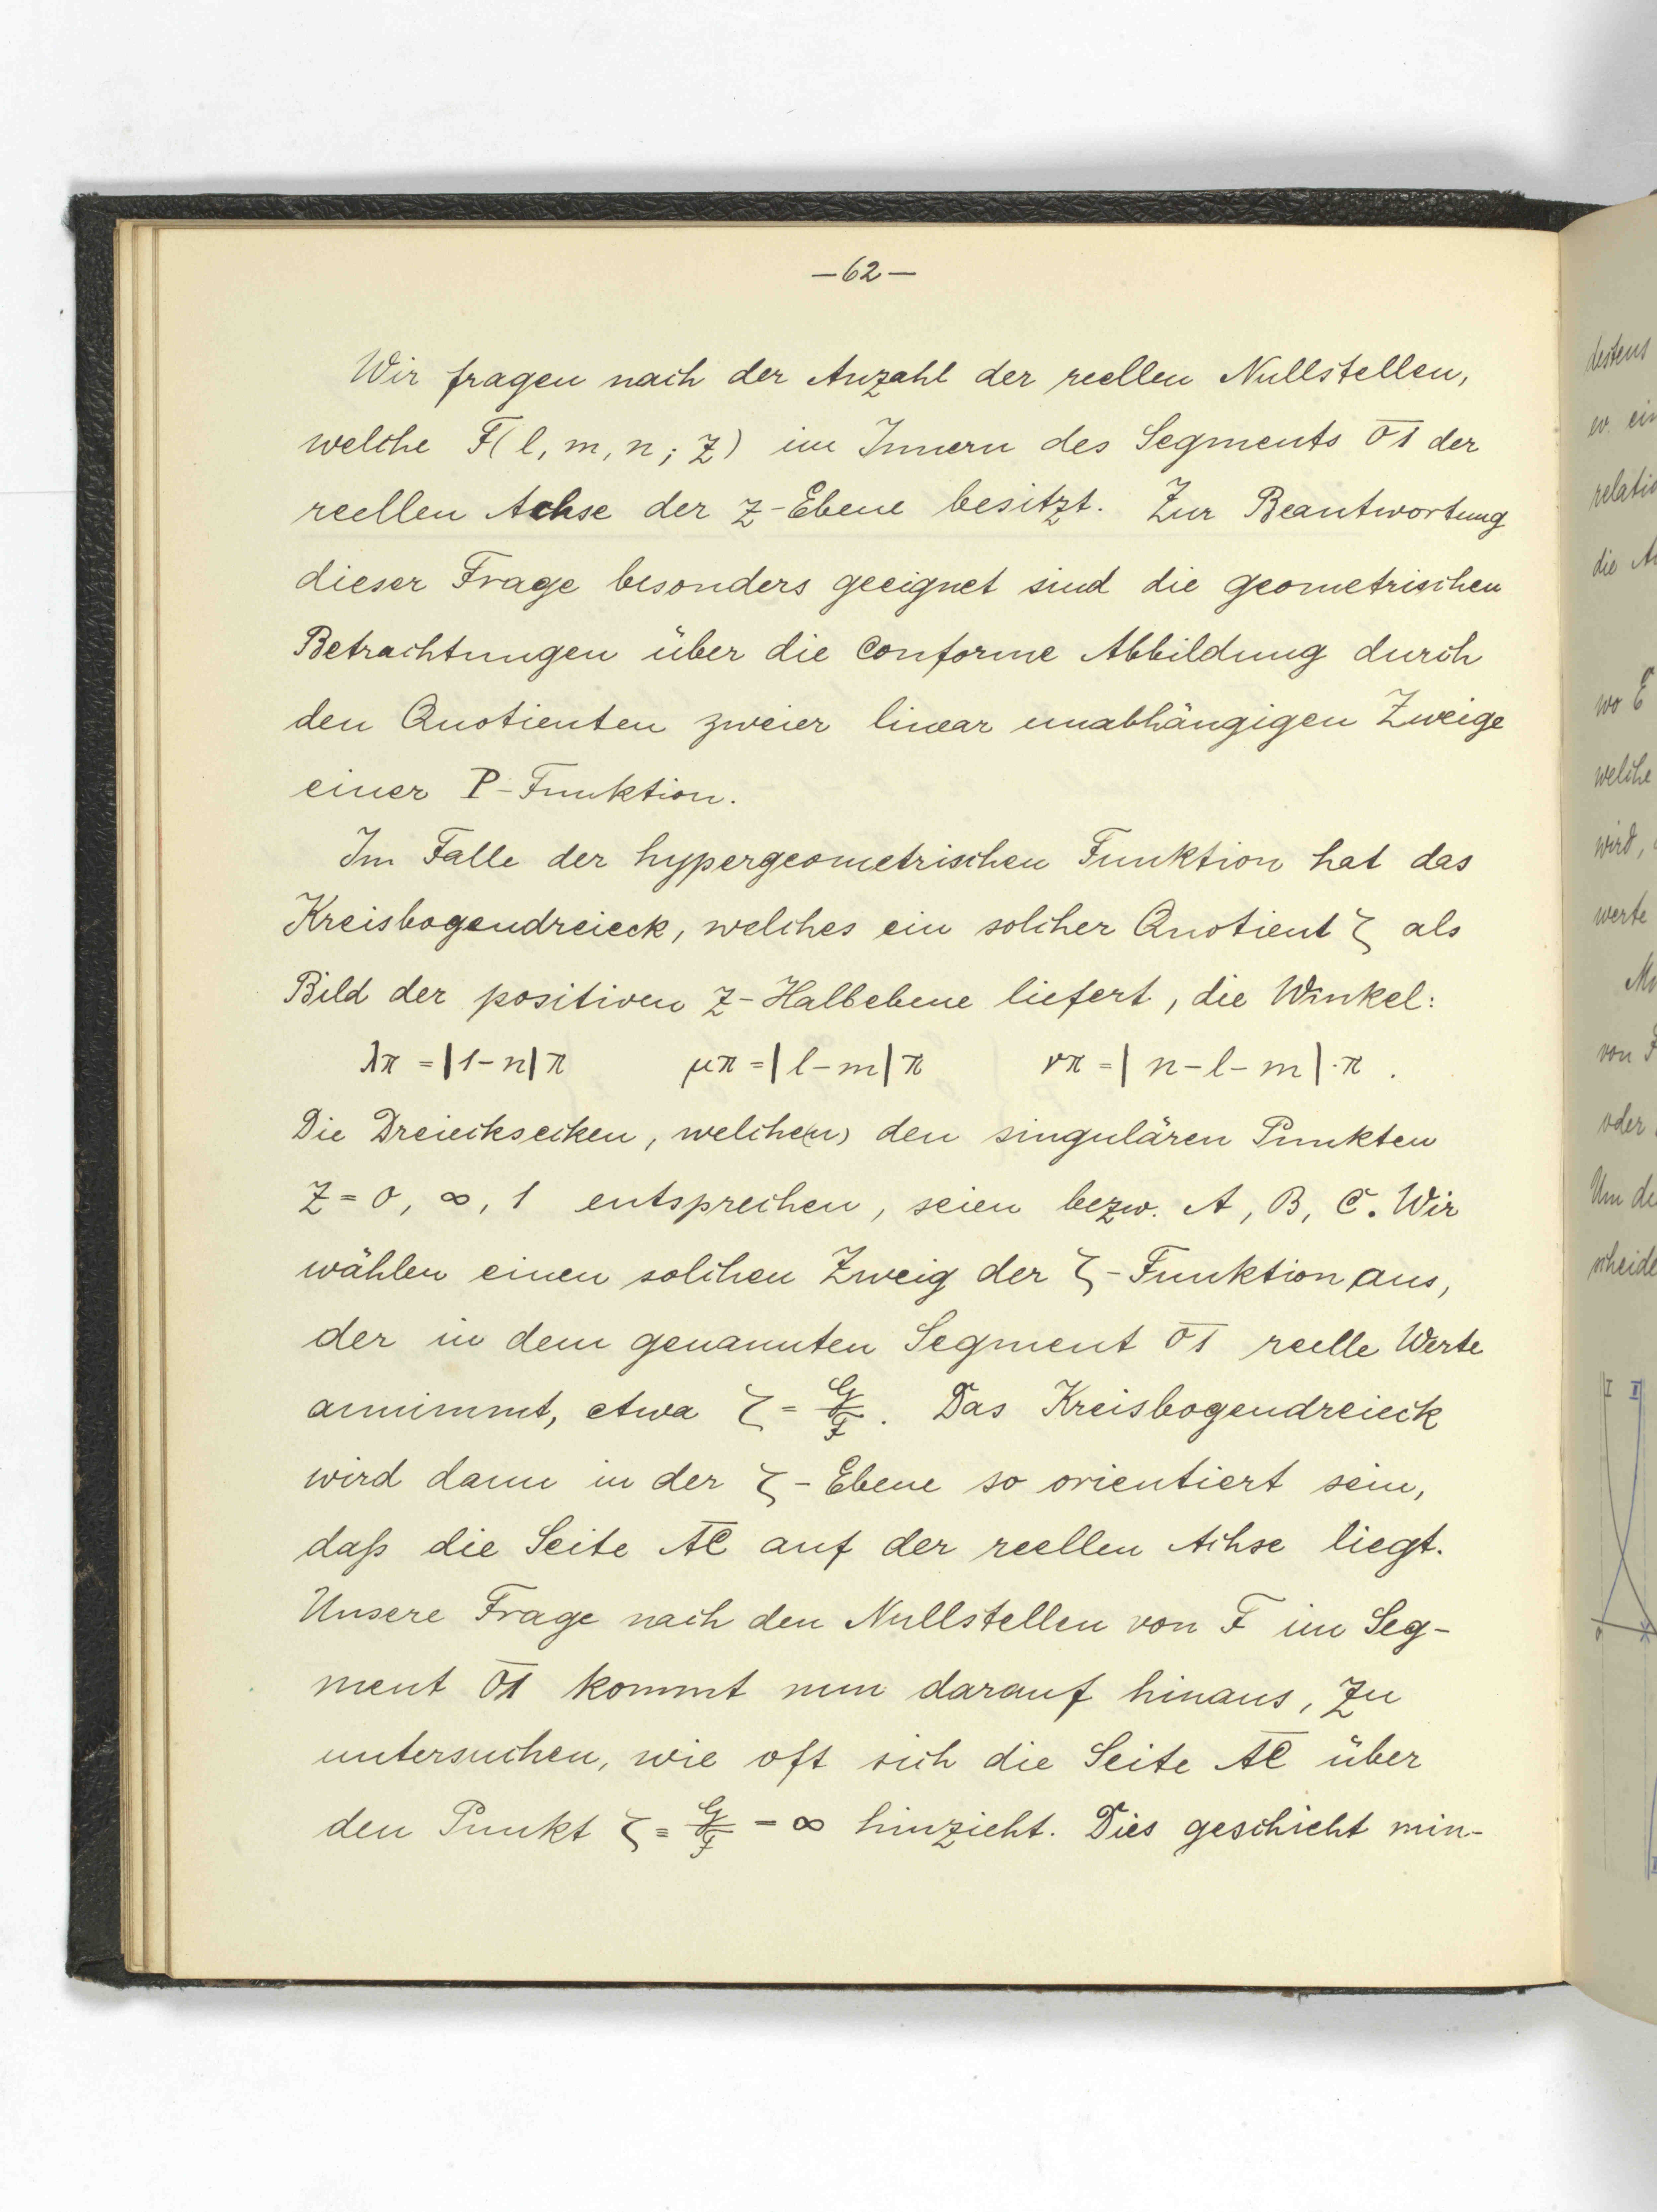 —62—
Wir fragen nach der Anzahl der reellen Nullstellen,
welche F(l, m, n; z) im Innern des Segments 0̅1̅ der
reellen Achse der z-Ebene besitzt. Zur Beantwortung
dieser Frage besonders geeignet sind die geometrischen
Betrachtungen über die conforme Abbildung durch
den Quotienten zweier linear unabhängigen Zweige
einer P-Funktion.
Im Falle der hypergeometrischen Funktion hat das
Kreisbogendreieck, welches ein solcher Quotient ζ als
Bild der positiven z-Halbebene liefert, die Winkel:
λπ = |1-n|π μπ = |l-m|π νπ = |n-l-m|·π.
Die Dreiecksecken, welche(n) den singulären Punkten
z = 0, ∞, 1 entsprechen, seien bezw. A, B, C. Wir
wählen einen solchen Zweig der ζ-Funktion aus,
der in dem genannten Segment 0̅1̅ reelle Werte
annimmt, etwa ζ = G/F. Das Kreisbogendreieck
wird dann in der ζ-Ebene so orientiert sein,
daß die Seite A̅C̅ auf der reellen Achse liegt.
Unsere Frage nach den Nullstellen von F im Seg-
ment 0̅1̅ kommt nun darauf hinaus, zu
untersuchen, wie oft sich die Seite A̅C̅ über
den Punkt ζ = G/F = ∞ hinzieht. Dies geschieht min-
destens
relatio
die
wo E
welche
wird,
werte
von F
oder
Um de
scheide
I II